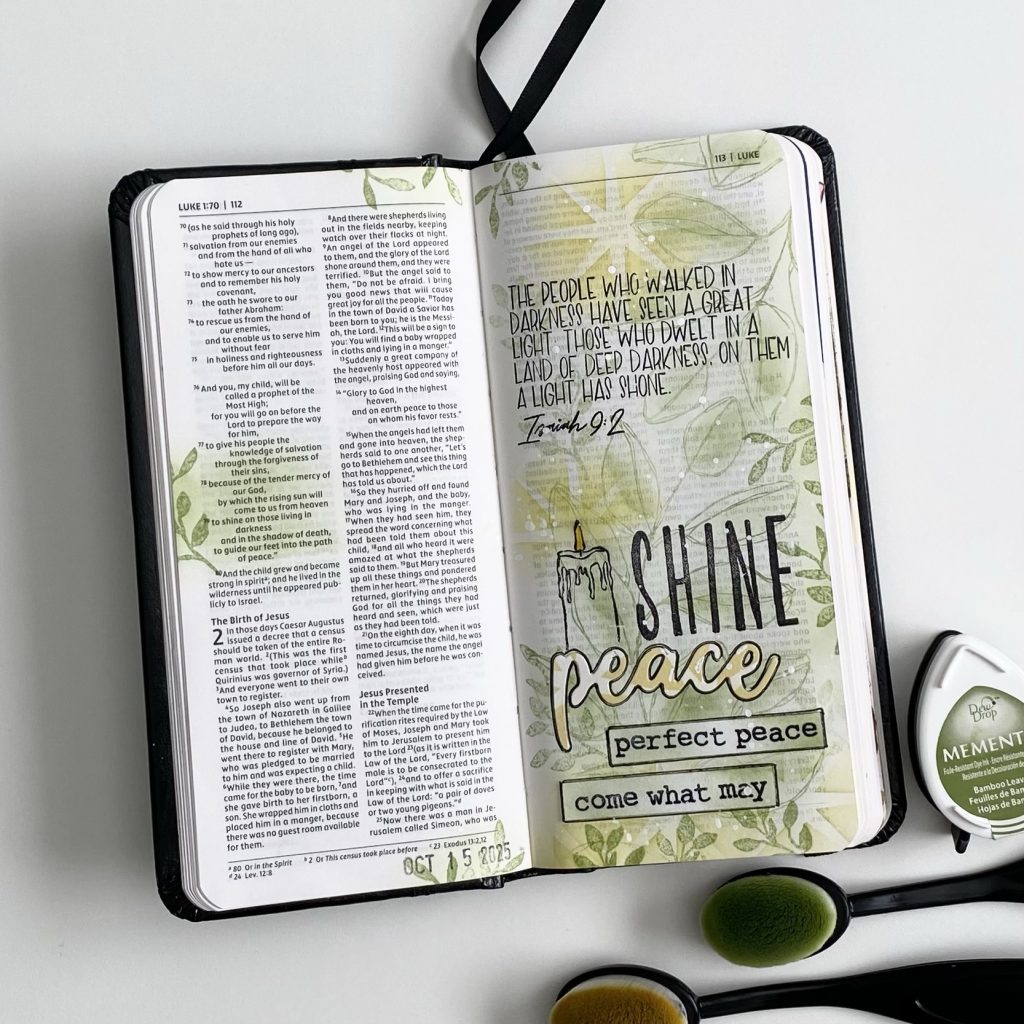 LUKE 1:70 | 112
70 (as he said through his holy
prophets of long ago),
71 salvation from our enemies
and from the hand of all who
hate us —
72 to show mercy to our ancestors
and to remember his holy
covenant,
73 the oath he swore to our
father Abraham:
74 to rescue us from the hand of
our enemies,
and to enable us to serve him
without fear
75 in holiness and righteousness
before him all our days.
76 And you, my child, will be
called a prophet of the
Most High;
for you will go on before the
Lord to prepare the way
for him,
77 to give his people the
knowledge of salvation
through the forgiveness of
their sins,
78 because of the tender mercy of
our God,
by which the rising sun will
come to us from heaven
to shine on those living in
darkness
and in the shadow of death,
to guide our feet into the path
of peace.”
80 And the child grew and became
strong in spirit a; and he lived in the
wilderness until he appeared pub-
licly to Israel.
The Birth of Jesus
2 In those days Caesar Augustus
issued a decree that a census
should be taken of the entire Ro-
man world. 2 (This was the first
census that took place while b
Quirinius was governor of Syria.)
3 And everyone went to their own
town to register.
4 So Joseph also went up from
the town of Nazareth in Galilee
to Judea, to Bethlehem the town
of David, because he belonged to
the house and line of David. 5 He
went there to register with Mary,
who was pledged to be married
to him and was expecting a child.
6 While they were there, the time
came for the baby to be born, 7 and
she gave birth to her firstborn, a
son. She wrapped him in cloths and
placed him in a manger, because
there was no guest room available
for them.
8 And there were shepherds living
out in the fields nearby, keeping
watch over their flocks at night.
9 An angel of the Lord appeared
to them, and the glory of the Lord
shone around them, and they were
terrified. 10 But the angel said to
them, “Do not be afraid. I bring
you good news that will cause
great joy for all the people. 11 Today
in the town of David a Savior has
been born to you; he is the Messi-
ah, the Lord. 12 This will be a sign to
you: You will find a baby wrapped
in cloths and lying in a manger.”
13 Suddenly a great company of
the heavenly host appeared with
the angel, praising God and saying,
14 “Glory to God in the highest
heaven,
and on earth peace to those
on whom his favor rests.”
15 When the angels had left them
and gone into heaven, the shep-
herds said to one another, “Let’s
go to Bethlehem and see this thing
that has happened, which the Lord
has told us about.”
16 So they hurried off and found
Mary and Joseph, and the baby,
who was lying in the manger.
17 When they had seen him, they
spread the word concerning what
had been told them about this
child, 18 and all who heard it were
amazed at what the shepherds
said to them. 19 But Mary treasured
up all these things and pondered
them in her heart. 20 The shepherds
returned, glorifying and praising
God for all the things they had
heard and seen, which were just
as they had been told.
21 On the eighth day, when it was
time to circumcise the child, he was
named Jesus, the name the angel
had given him before he was con-
ceived.
Jesus Presented
in the Temple
22 When the time came for the pu-
rification rites required by the Law
of Moses, Joseph and Mary took
him to Jerusalem to present him
to the Lord 23 (as it is written in the
Law of the Lord, “Every firstborn
male is to be consecrated to the
Lord” c), 24 and to offer a sacrifice
in keeping with what is said in the
Law of the Lord: “a pair of doves
or two young pigeons.” d
25 Now there was a man in Je-
rusalem called Simeon, who was
a 80 Or in the Spirit b 2 Or This census took place before c 23 Exodus 13:2,12
d 24 Lev. 12:8
OCT 15 2025
113 | LUKE
THE PEOPLE WHO WALKED IN
DARKNESS HAVE SEEN A GREAT
LIGHT; THOSE WHO DWELT IN A
LAND OF DEEP DARKNESS, ON THEM
A LIGHT HAS SHONE.
Isaiah 9:2
SHINE
peace
perfect peace
come what may
Dew
Drop
MEMENT
Bamboo Leav
Feuilles de Bam
Hojas de Bam